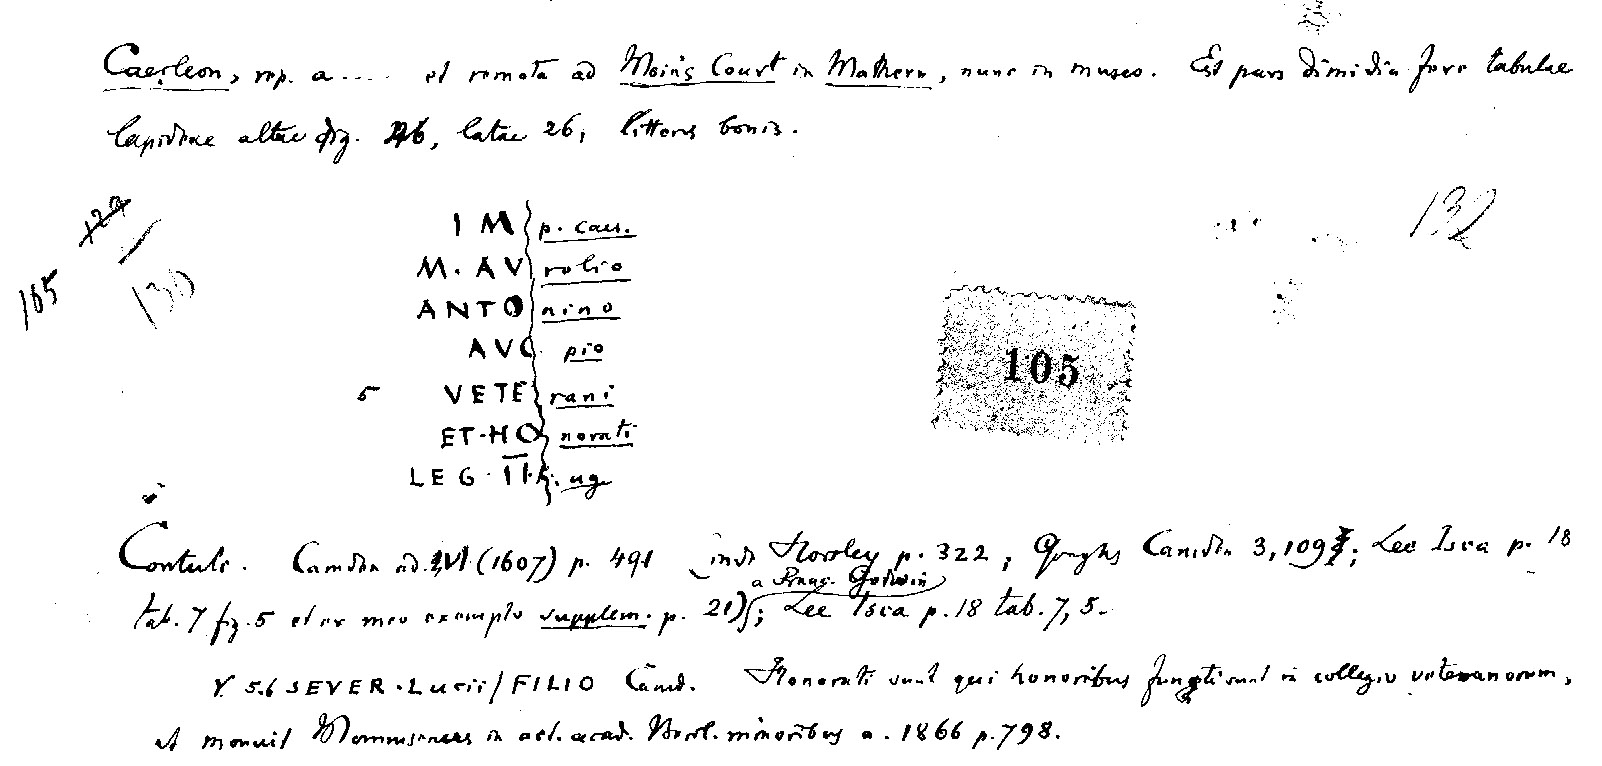 Caerleon, rep. a .... et remota ad Moins Court in Mathern, nunc in museo. Est pars dimidia fere tabulae
lapideae altae dig. 26, latae 26, litteris bonis.
129
132
130
105
IM p. caes.
M. AV relio
ANTO nino
AVG pio
105
5 VETE rani
ET·HO norati
LEG·II A. ug
Contuli. Camden ad. VI (1607) p. 491 inde Horsley p. 322; Goughs Camden 3, 109; Lee Isca p. 18
a Franc. Godwin
tab. 7 fig. 5 et ex meo exemplo supplem. p. 21); Lee Isca p. 18 tab. 7, 5.
V. 5.6 SEVER·Lucii/FILIO Camd. Honorati sunt qui honoribus functi sunt in collegio veteranorum,
ut monuit Mommsenus in act. acad. Berol. minoribus a. 1866 p. 798.